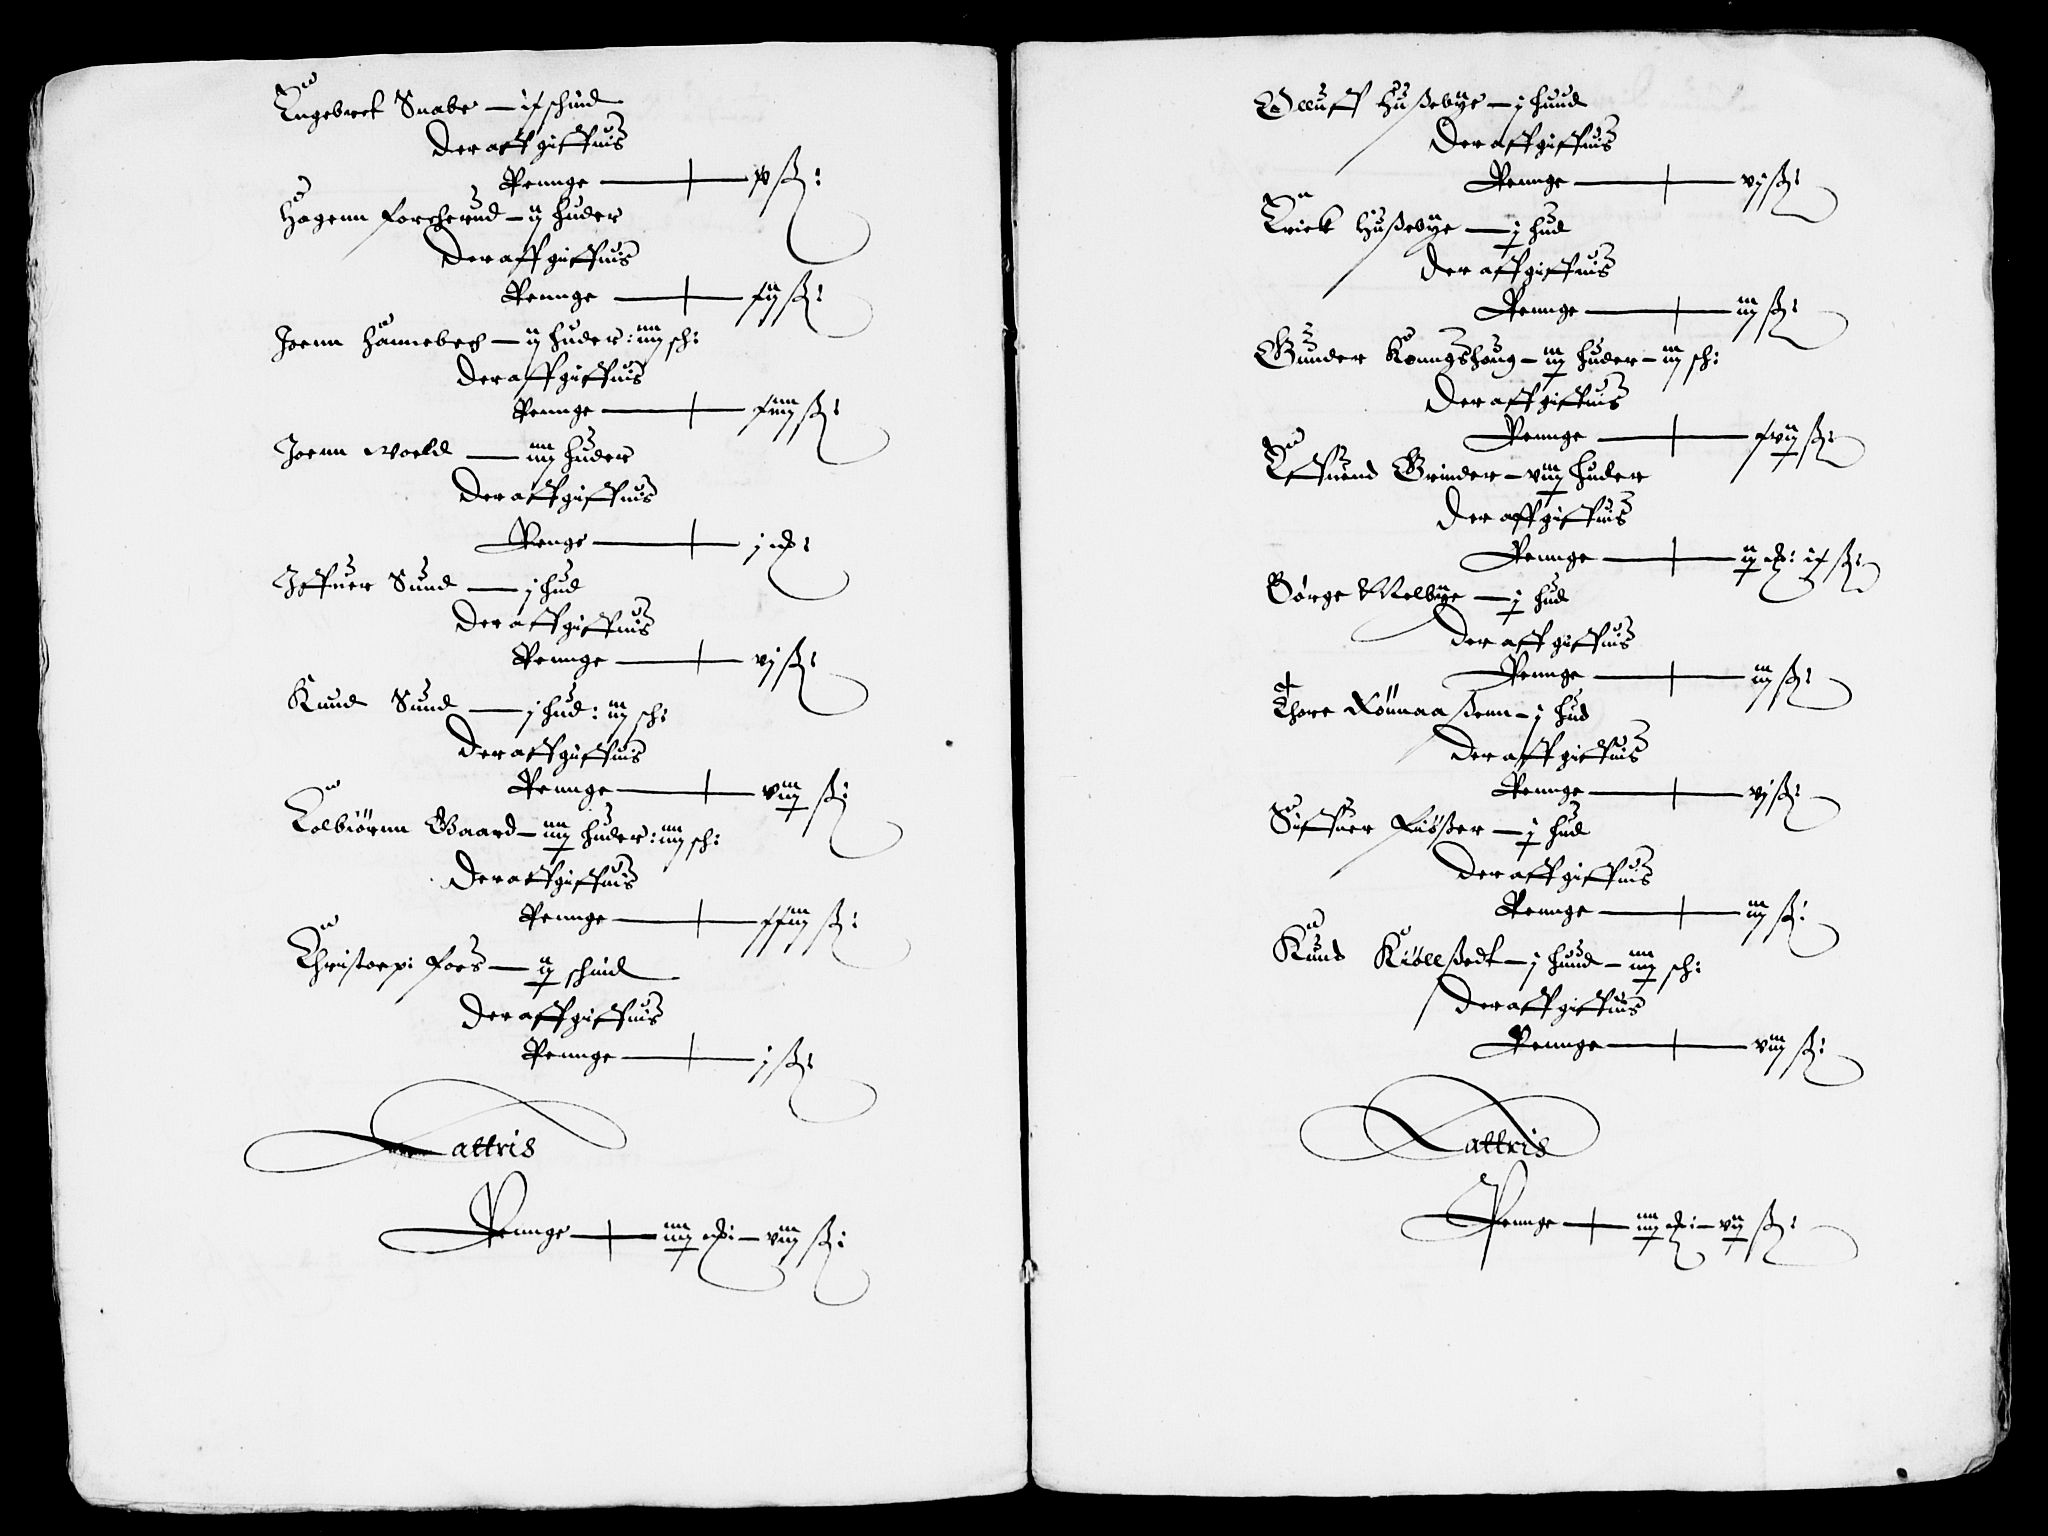 Engebret Snabe — ix schind
Der aff giffuis
Penge — xv ß:
Hagenn Forcherud — ij huder
Der aff giffuis
Penge — xij ß:
Joenn Hanneborg — ij huder: iiij sch:
Der aff giffuis
Penge — xiiij ß:
Joenn Woeld — iiij huder
Der aff giffuis
Penge — j rd:
Jffuer Sund — j hud
Der aff giffuis
Penge — vj ß:
Knud Sund — j hud: iij sch:
Der aff giffuis
Penge — viij ß:
Tolbiørnn Gaard — iiij huder: iiij sch:
Der aff giffuis
Penge — xxiij ß:
Christopi Foss — ij schind
Der aff giffuis
Penge — j ß:
Lattris
Penge — iiij rd: — viij ß:
Olluff Hußebye — j huud
Der aff giffuis
Penge — vj ß:
Erick Hußebye — j hud
Der aff giffuis
Penge — iij ß:
Gunder Konngshoug — iij huder — iij sch:
Der aff giffuis
Penge — xvij ß:
Effuend Grinder — viij huder
Der aff giffuis
Penge — ij rd: ix ß:
Børge Melbye — j hud
Der aff giffuis
Penge — iij ß:
Thore Rønnaaßenn — j hud
Der aff giffuis
Penge — vj ß:
Siffuer Fiøßer — j hud
Der aff giffuis
Penge — iij ß:
Knud Kiøllßedt — j huud — iiij sch:
Der aff giffuis
Penge — viij ß:
Lattris
Penge — iiij rd: — vij ß: